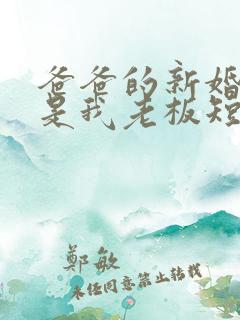 爸爸的新婚
是我老板短
鄭敏
未任同意禁止转载